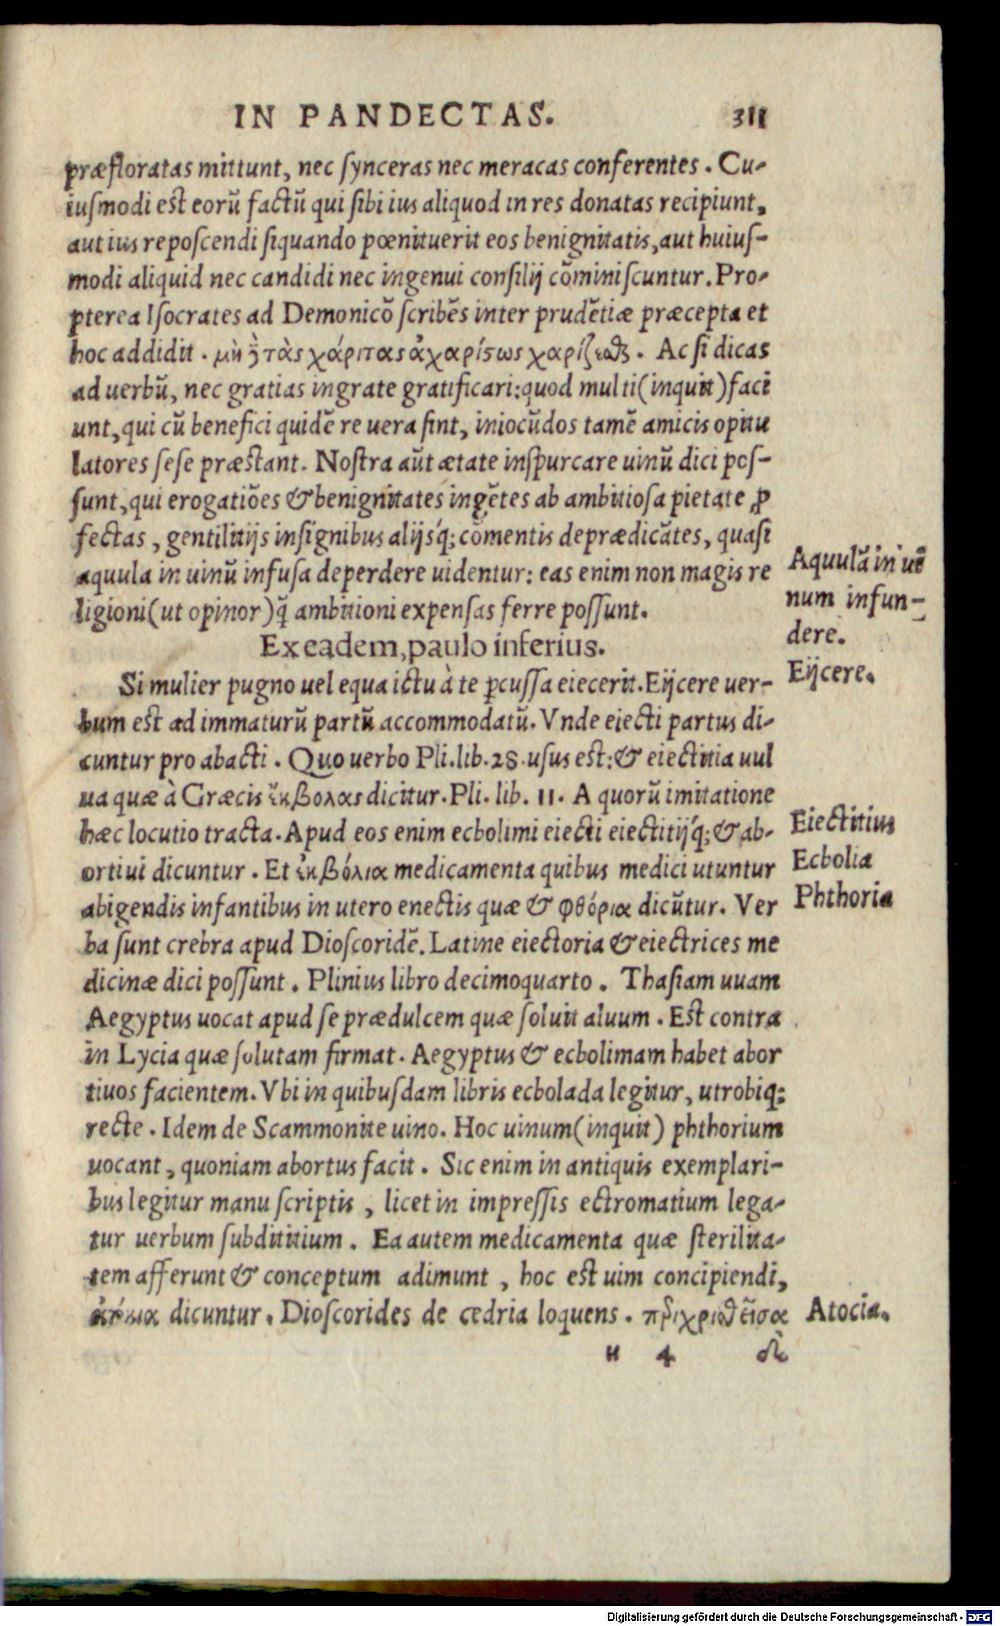 IN PANDECTAS. 311
præfloratas mittunt, nec synceras nec meracas conferentes. Cu-
iusmodi est eorũ factũ qui sibi ius aliquod in res donatas recipiunt,
aut ius reposcendi siquando pœnituerit eos benignitatis, aut huius-
modi aliquid nec candidi nec ingenui consilij cõminiscuntur. Pro-
pterea Isocrates ad Demonicõ scribẽs inter prudẽtiæ præcepta et
hoc addidit. μὴ τὰς χάριτας ἀχαρίστως χαρίζεσθαι. Ac si dicas
ad uerbũ, nec gratias ingrate gratificari: quod multi (inquit) faci
unt, qui cũ benefici quidẽ re uera sint, iniocũdos tamẽ amicis opitu
latores sese præstant. Nostra aũt ætate inspurcare uinũ dici pos-
sunt, qui erogatiões & benignitates ingẽtes ab ambitiosa pietate ꝓ
fectas, gentilitijs insignibus alijsq́; cõmentis deprædicãtes, quasi
aquula in uinũ infusa deperdere uidentur: eas enim non magis re
ligioni (ut opinor) q̃ ambitioni expensas ferre possunt.
Aquulã in ui
num infun-
dere.
Ex eadem, paulo inferius.
Si mulier pugno uel equa ictu à te ꝑcussa eiecerit. Eijcere uer-
Eijcere.
bum est ad immaturũ partũ accommodatũ. Vnde eiecti partus di-
cuntur pro abacti. Quo uerbo Pli. lib. 28. usus est: & eiectitia uul
ua quæ à Græcis ἐκβολας dicitur. Pli. lib. 11. A quorũ imitatione
hæc locutio tracta. Apud eos enim ecbolimi eiecti eiectitijq́; & ab-
Eiectitius
ortiui dicuntur. Et ἐκβόλια medicamenta quibus medici utuntur
Ecbolia
abigendis infantibus in utero enectis quæ & φθόρια dicũtur. Ver
Phthoria
ba sunt crebra apud Dioscoridẽ. Latine eiectoria & eiectrices me
dicinæ dici possunt. Plinius libro decimoquarto. Thasiam uuam
Aegyptus uocat apud se prædulcem quæ soluit aluum. Est contra
in Lycia quæ solutam firmat. Aegyptus & ecbolimam habet abor
tiuos facientem. Vbi in quibusdam libris ecbolada legitur, utrobiq;
recte. Idem de Scammonite uino. Hoc uinum (inquit) phthorium
uocant, quoniam abortus facit. Sic enim in antiquis exemplari-
bus legitur manu scriptis, licet in impressis ectromatium lega-
tur uerbum subdititium. Ea autem medicamenta quæ sterilita-
tem afferunt & conceptum adimunt, hoc est uim concipiendi,
ἀτόκια dicuntur. Dioscorides de cedria loquens. περιχρισθεῖσα
Atocia.
u 4 δὲ
Digitalisierung gefördert durch die Deutsche Forschungsgemeinschaft - DFG